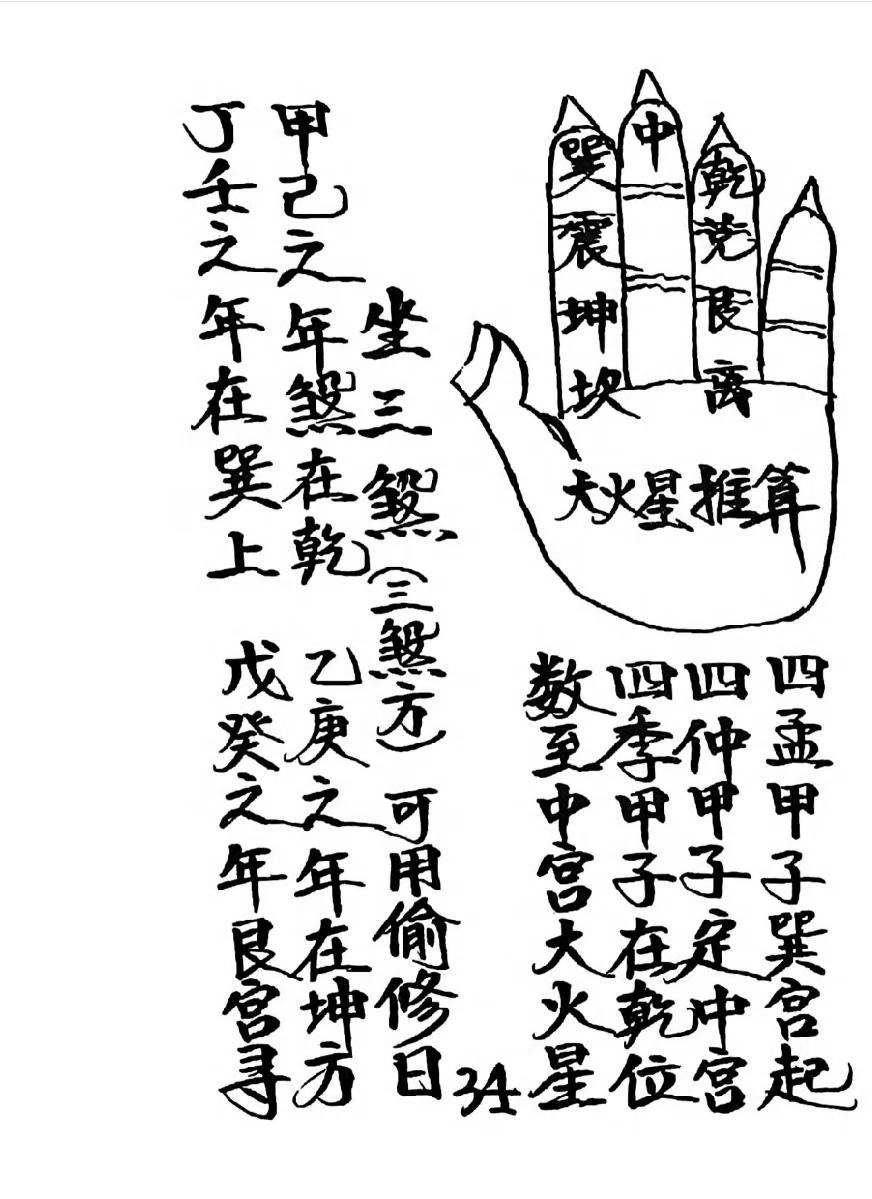 巽
震
坤
坎
中
乾
兑
艮
离
大火星推算
四孟甲子巽宫起
四仲甲子定中宫
四季甲子在乾位
数至中宫大火星
34
坐三煞(三煞方)可用偷修日
甲己之年煞在乾
乙庚之年在坤方
丁壬之年在巽上
戊癸之年艮宫寻